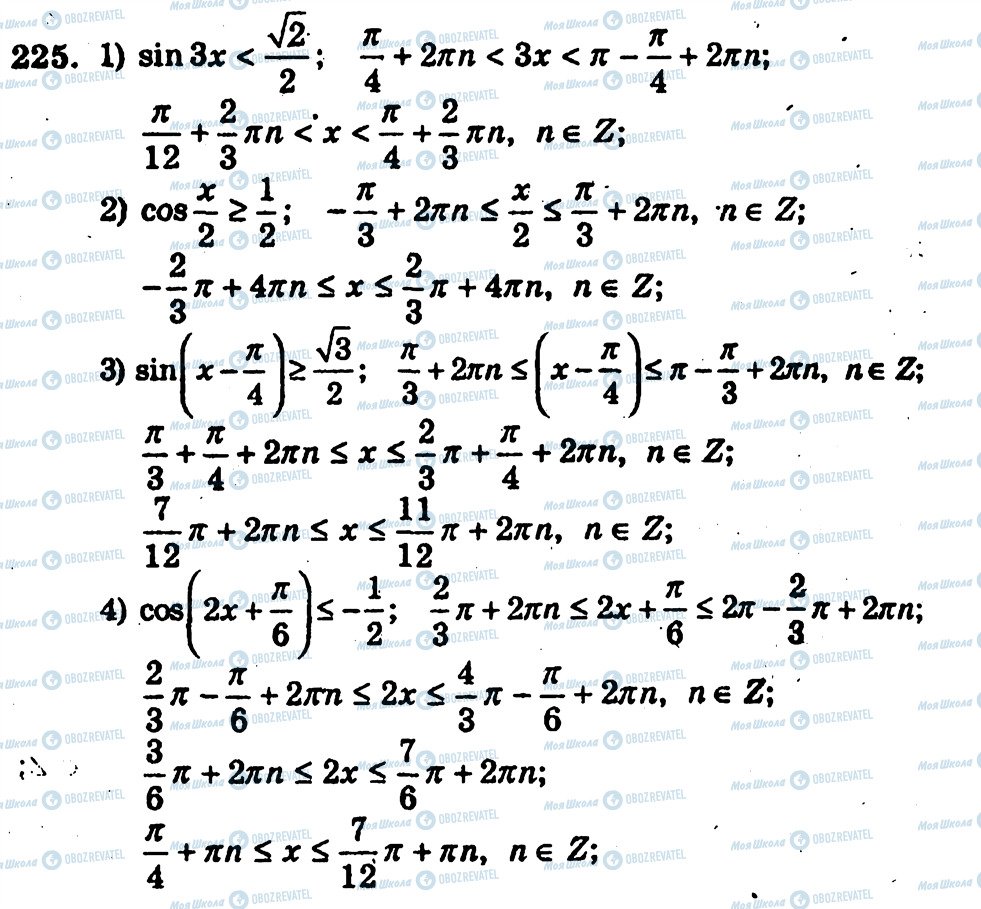 225. 1) sin 3x < √2/2; π/4 + 2πn < 3x < π − π/4 + 2πn;
π/12 + 2/3 πn < x < π/4 + 2/3 πn, n ∈ Z;
2) cos x/2 ≥ 1/2; −π/3 + 2πn ≤ x/2 ≤ π/3 + 2πn, n ∈ Z;
−2/3 π + 4πn ≤ x ≤ 2/3 π + 4πn, n ∈ Z;
3) sin(x − π/4) ≥ √3/2; π/3 + 2πn ≤ (x − π/4) ≤ π − π/3 + 2πn, n ∈ Z;
π/3 + π/4 + 2πn ≤ x ≤ 2/3 π + π/4 + 2πn, n ∈ Z;
7/12 π + 2πn ≤ x ≤ 11/12 π + 2πn, n ∈ Z;
4) cos(2x + π/6) ≤ −1/2; 2/3 π + 2πn ≤ 2x + π/6 ≤ 2π − 2/3 π + 2πn;
2/3 π − π/6 + 2πn ≤ 2x ≤ 4/3 π − π/6 + 2πn, n ∈ Z;
3/6 π + 2πn ≤ 2x ≤ 7/6 π + 2πn;
π/4 + πn ≤ x ≤ 7/12 π + πn, n ∈ Z;